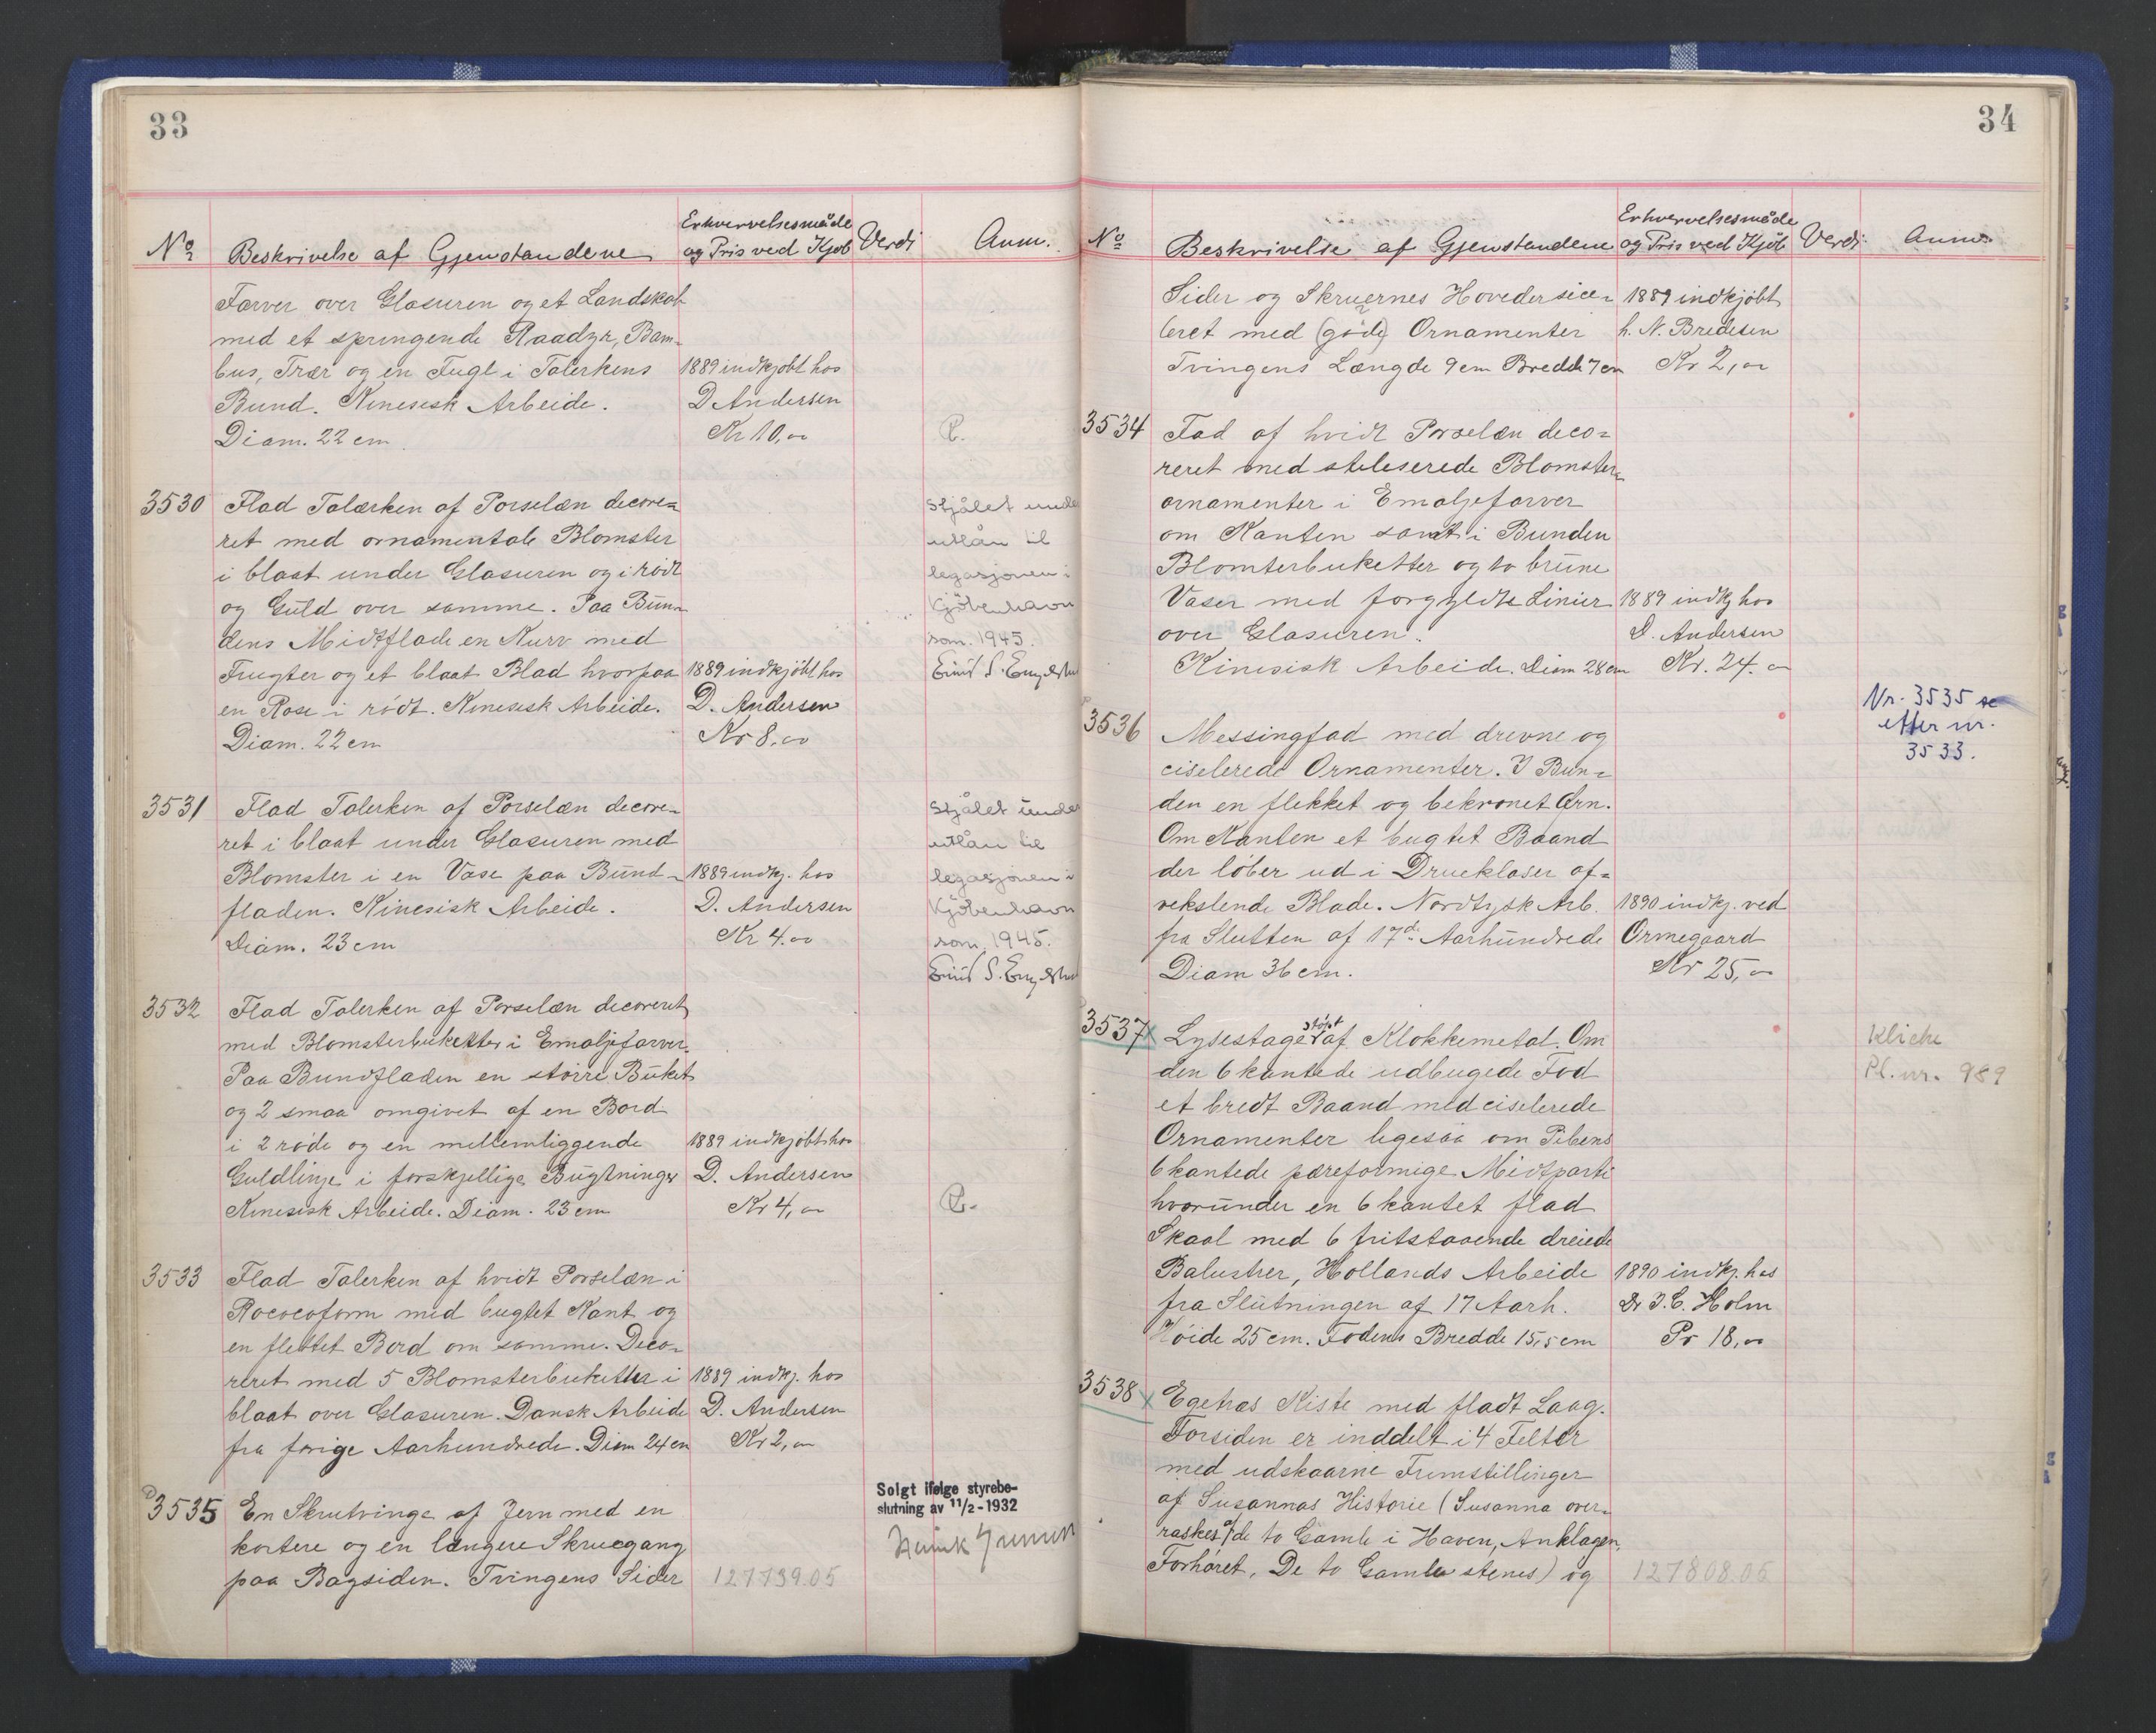 33
No Beskrivelse af Gjenstandene Erhvervelsesmåde og Pris ved Kjøb Verdi Anm.
Farver over Glasuren og et Landskab
med et springende Raadyr, Bam-
bus, Trær og en Fugl i Talerkens 1889 indkjøbt hos
Bund. Kinesisk Arbeide. D Andersen
Diam. 22 cm Kr 10,00
3530 Flad Talærken af Porselæn decore-
ret med ornamentale Blomster
i blaat under Glasuren og i rødt
og Guld over samme. Paa Bun-
dens Midtflade en Kurv med
Frugter og et blaat Blad hvorpaa 1889 indkjøbt hos
en Rose i rødt. Kinesisk Arbeide. D. Andersen
Diam. 22 cm Kr 8,00
Stjålet under
utlån til
legasjonen i
Kjøbenhavn
som. 1945.
3531 Flad Talerken af Porselæn decore-
ret i blaat under Glasuren med
Blomster i en Vase paa Bund- 1889 indkj. hos
fladen. Kinesisk Arbeide. D. Andersen
Diam. 23 cm Kr 4.00
Stjålet under
utlån til
legasjonen i
Kjøbenhavn
som. 1945.
3532 Flad Talerken af Porselæn decoreret
med Blomsterbuketter i Emaljefarver.
Paa Bundfladen en større Buket
og 2 smaa omgivet af en Bord
i 2 røde og en mellemliggende 1889 indkjøbt hos
Guldlinje i forskjellige Bugtninger D. Andersen
Kinesisk Arbeide. Diam. 23 cm Kr 4,00
3533 Flad Talerken af hvidt Porselæn i
Rococoform med bugtet Kant og
en flettet Bord om samme. Deco-
reret med 5 Blomsterbuketter i 1889 indkj. hos
blaat over Glasuren. Dansk Arbeide D. Andersen
fra forige Aarhundrede. Diam 24 cm Kr 2,00
3535 En Skrutvinge af Jern med en
kortere og en længere Skruegang
paa Bagsiden. Tvingens Sider 127739.05
Solgt ifølge styrebe-
slutning av 11/2-1932
34
No Beskrivelse af Gjenstandene Erhvervelsesmåde og Pris ved Kjøb Verdi Anm.
Sider og Skruernes Hoveder sice- 1889 indkjøbt
leret med (gode) Ornamenter h. N. Bredesen
Tvingens Længde 9 cm Bredde 7 cm Kr 2,00
3534 Fad af hvidt Porselæn deco-
reret med steleserede Blomster-
ornamenter i Emaljefarver
om Kanten samt i Bunden
Blomterbuketter og to brune
Vaser med forgyldte Linier 1889 indkj hos
over Glasuren. D. Andersen
Kinesisk Arbeide. Diam 28 cm Kr. 24.00
Nr. 3535 se
efter nr.
3533.
3536 Messingfad med drevne og
ciselerede Ornamenter. I Bun-
den en flekket og bekronet Ørn.
Om Kanten et bugtet Baand
der løber ud i Drueklaser af-
vekslende Blade. Nordtysk Arb. 1890 indkj. ved
fra Slutten af 17de Aarhundrede Ormegaard
Diam 36 cm. Kr 25,00
3537 x Lysestage støpt af Klokkemetal. Om
den 6 kantede udbugede Fod
et bredt Baand med ciselerede
Ornamenter ligesaa om Pibens
6 kantede pæreformige Midtparti
hvorunder en 6 kantet flad
Skaal med 6 fritstaaende dreiede
Balustrer, Hollands Arbeide 1890 indkj. hos
fra Slutningen af 17 Aarh. Dr J. C. Holm
Høide 25 cm. Fodens Bredde 15,5 cm Pr 18,00
Kliche
Pl. nr. 989
3538 x Egetræs Kiste med fladt Laag.
Forsiden er inddelt i 4 Felter
med udskaarne Fremstillinger
af Susannas Historie (Susanna over-
raskes af de to Gamle i Haven, Anklagen,
Forhøret, De to Gamle stenes) og 127808.05